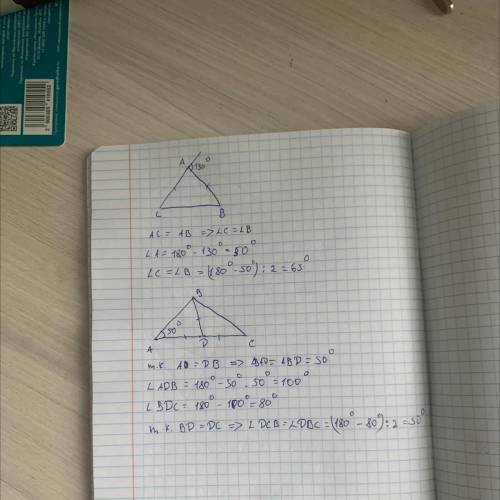 A 130°
C B
AC = AB => ∠C = ∠B
∠A = 180° - 130° = 50°
∠C = ∠B = (180° - 50°) : 2 = 65°
B
50°
A D C
т.к. AD = DB => ∠BAD = ∠ABD = 50°
∠ADB = 180° - 50° - 50° = 100°
∠BDC = 180° - 100° = 80°
т.к. BD = DC => ∠DCB = ∠DBC = (180° - 80°) : 2 = 50°